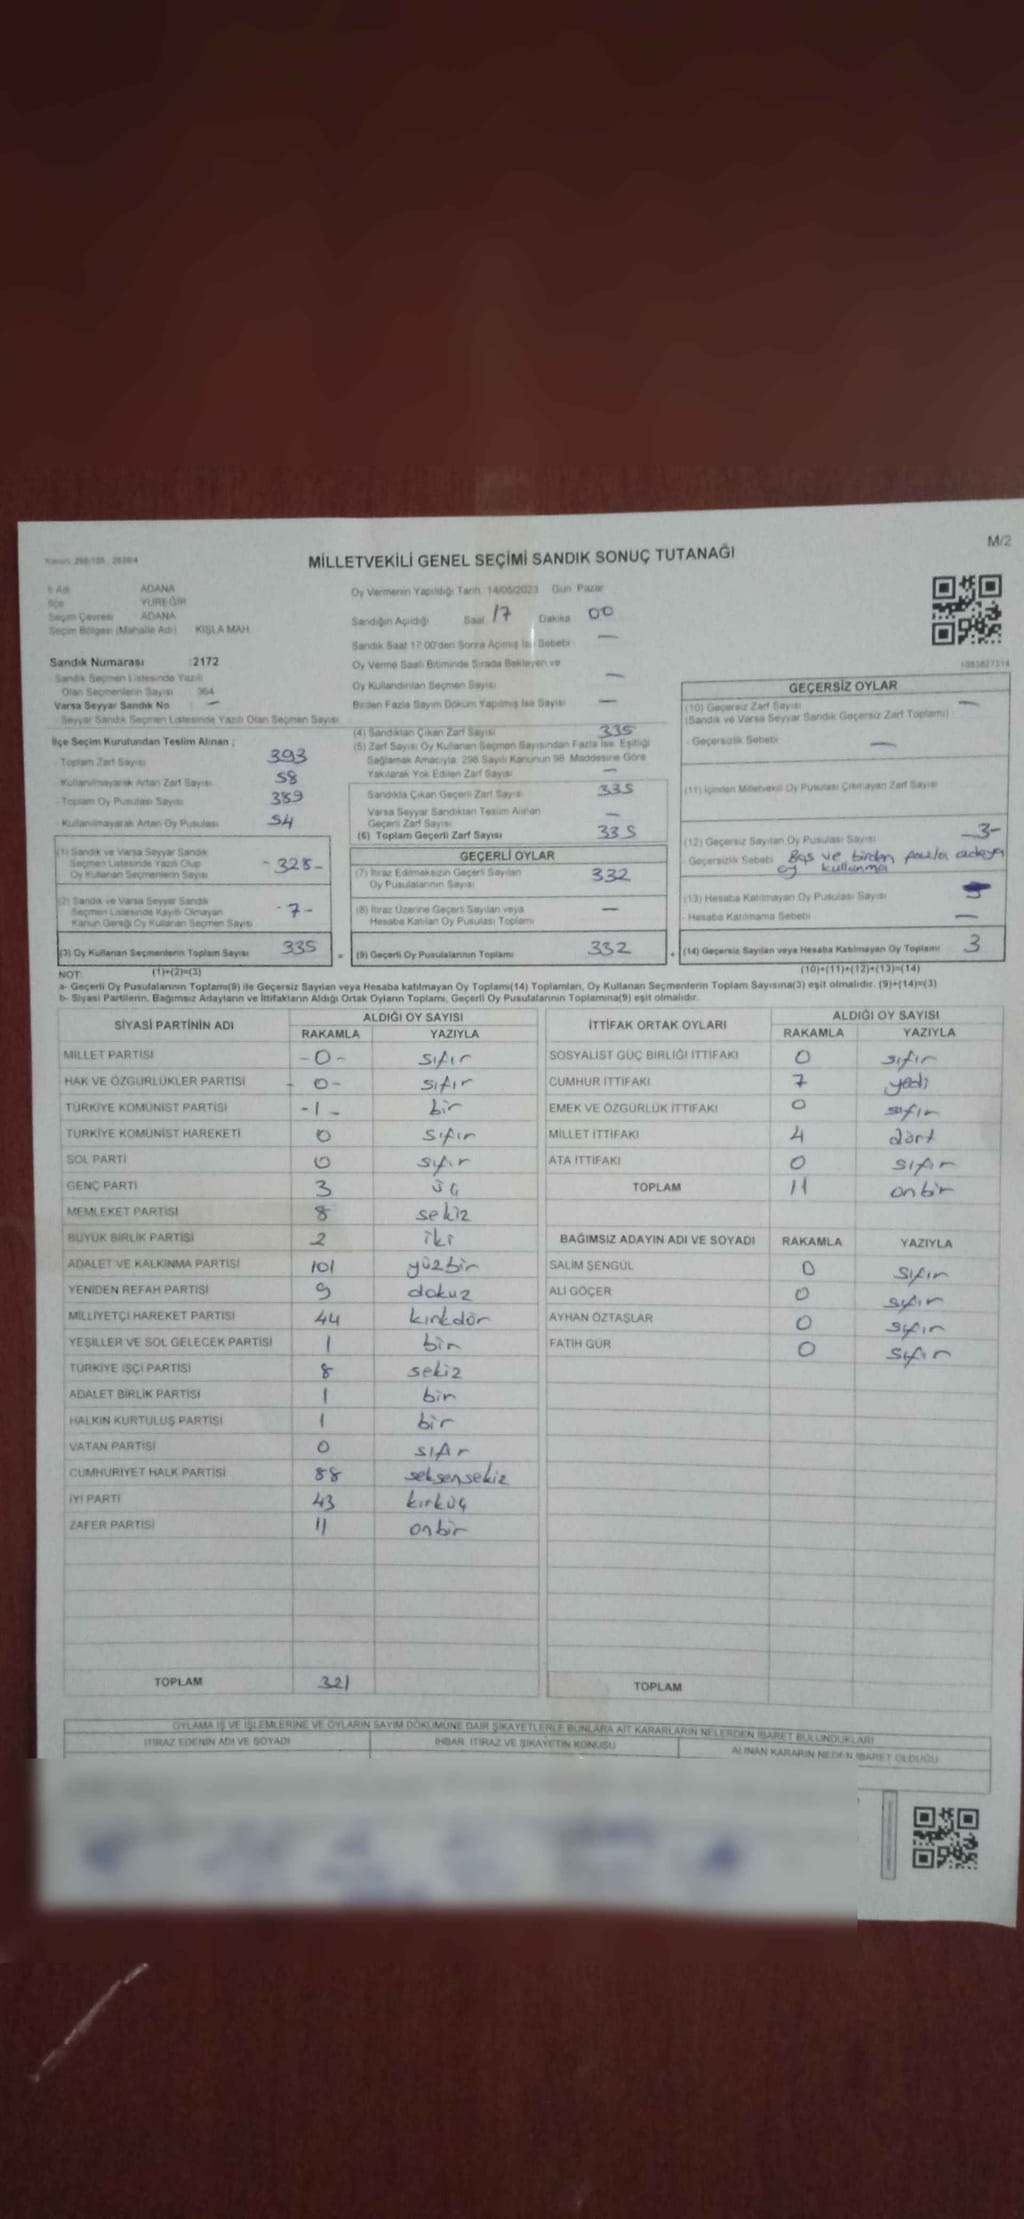 M/2
MİLLETVEKİLİ GENEL SEÇİMİ SANDIK SONUÇ TUTANAĞI
İl Adı ADANA
İlçe YÜREĞİR
Seçim Çevresi ADANA
Seçim Bölgesi (Mahalle Adı) KIŞLA MAH.
Sandık Numarası : 2172
Sandık Seçmen Listesinde Yazılı
Olan Seçmenlerin Sayısı 364
Varsa Seyyar Sandık No —
Seyyar Sandık Seçmen Listesinde Yazılı Olan Seçmen Sayısı
Oy Vermenin Yapıldığı Tarih: 14/05/2023 Gün: Pazar
Sandığın Açıldığı Saat 17 Dakika 00
Sandık Saat 17:00'den Sonra Açılmış İse Sebebi —
Oy Verme Saati Bitiminde Sırada Bekleyen ve
Oy Kullandırılan Seçmen Sayısı —
Birden Fazla Sayım Döküm Yapılmış İse Sayısı —
1083827314
İlçe Seçim Kurulundan Teslim Alınan ;
- Toplam Zarf Sayısı 393
- Kullanılmayarak Artan Zarf Sayısı 58
- Toplam Oy Pusulası Sayısı 389
- Kullanılmayarak Artan Oy Pusulası 54
(1) Sandık ve Varsa Seyyar Sandık
Seçmen Listesinde Yazılı Olup
Oy Kullanan Seçmenlerin Sayısı - 328 -
(2) Sandık ve Varsa Seyyar Sandık
Seçmen Listesinde Kayıtlı Olmayan
Kanun Gereği Oy Kullanan Seçmen Sayısı - 7 -
(3) Oy Kullanan Seçmenlerin Toplam Sayısı 335
(4) Sandıktan Çıkan Zarf Sayısı 335
(5) Zarf Sayısı Oy Kullanan Seçmen Sayısından Fazla İse, Eşitliği
Sağlamak Amacıyla; 298 Sayılı Kanunun 98. Maddesine Göre
Yakılarak Yok Edilen Zarf Sayısı —
Sandıkta Çıkan Geçerli Zarf Sayısı 335
Varsa Seyyar Sandıktan Teslim Alınan
Geçerli Zarf Sayısı —
(6) Toplam Geçerli Zarf Sayısı 335
GEÇERLİ OYLAR
(7) İtiraz Edilmeksizin Geçerli Sayılan
Oy Pusulalarının Sayısı 332
(8) İtiraz Üzerine Geçerli Sayılan veya
Hesaba Katılan Oy Pusulası Toplamı —
= (9) Geçerli Oy Pusulalarının Toplamı 332
GEÇERSİZ OYLAR
(10) Geçersiz Zarf Sayısı —
(Sandık ve Varsa Seyyar Sandık Geçersiz Zarf Toplamı)
- Geçersizlik Sebebi —
(11) İçinden Milletvekili Oy Pusulası Çıkmayan Zarf Sayısı
(12) Geçersiz Sayılan Oy Pusulası Sayısı -3-
- Geçersizlik Sebebi Boş ve birden fazla adaya
oy kullanma
(13) Hesaba Katılmayan Oy Pusulası Sayısı
- Hesaba Katılmama Sebebi —
+ (14) Geçersiz Sayılan veya Hesaba Katılmayan Oy Toplamı 3
NOT: (1)+(2)=(3) (10)+(11)+(12)+(13)=(14)
a- Geçerli Oy Pusulalarının Toplamı(9) ile Geçersiz Sayılan veya Hesaba katılmayan Oy Toplamı(14) Toplamları, Oy Kullanan Seçmenlerin Toplam Sayısına(3) eşit olmalıdır. (9)+(14)=(3)
b- Siyasi Partilerin, Bağımsız Adayların ve İttifakların Aldığı Ortak Oyların Toplamı, Geçerli Oy Pusulalarının Toplamına(9) eşit olmalıdır.
SİYASİ PARTİNİN ADI ALDIĞI OY SAYISI
RAKAMLA YAZIYLA
MİLLET PARTİSİ - 0 - sıfır
HAK VE ÖZGÜRLÜKLER PARTİSİ - 0 - sıfır
TÜRKİYE KOMÜNİST PARTİSİ - 1 - bir
TÜRKİYE KOMÜNİST HAREKETİ 0 sıfır
SOL PARTİ 0 sıfır
GENÇ PARTİ 3 üç
MEMLEKET PARTİSİ 8 sekiz
BÜYÜK BİRLİK PARTİSİ 2 iki
ADALET VE KALKINMA PARTİSİ 101 yüzbir
YENİDEN REFAH PARTİSİ 9 dokuz
MİLLİYETÇİ HAREKET PARTİSİ 44 kırkdör
YEŞİLLER VE SOL GELECEK PARTİSİ 1 bir
TÜRKİYE İŞÇİ PARTİSİ 8 sekiz
ADALET BİRLİK PARTİSİ 1 bir
HALKIN KURTULUŞ PARTİSİ 1 bir
VATAN PARTİSİ 0 sıfır
CUMHURİYET HALK PARTİSİ 88 seksensekiz
İYİ PARTİ 43 kırküç
ZAFER PARTİSİ 11 onbir
TOPLAM 321
İTTİFAK ORTAK OYLARI ALDIĞI OY SAYISI
RAKAMLA YAZIYLA
SOSYALİST GÜÇ BİRLİĞİ İTTİFAKI 0 sıfır
CUMHUR İTTİFAKI 7 yedi
EMEK VE ÖZGÜRLÜK İTTİFAKI 0 sıfır
MİLLET İTTİFAKI 4 dört
ATA İTTİFAKI 0 sıfır
TOPLAM 11 onbir
BAĞIMSIZ ADAYIN ADI VE SOYADI RAKAMLA YAZIYLA
SALİM ŞENGÜL 0 sıfır
ALİ GÖÇER 0 sıfır
AYHAN ÖZTAŞLAR 0 sıfır
FATİH GÜR 0 sıfır
TOPLAM
OYLAMA İŞ VE İŞLEMLERİNE VE OYLARIN SAYIM DÖKÜMÜNE DAİR ŞİKAYETLERLE BUNLARA AİT KARARLARIN NELERDEN İBARET BULUNDUKLARI
İTİRAZ EDENİN ADI VE SOYADI İHBAR, İTİRAZ VE ŞİKAYETİN KONUSU ALINAN KARARIN NEDEN İBARET OLDUĞU